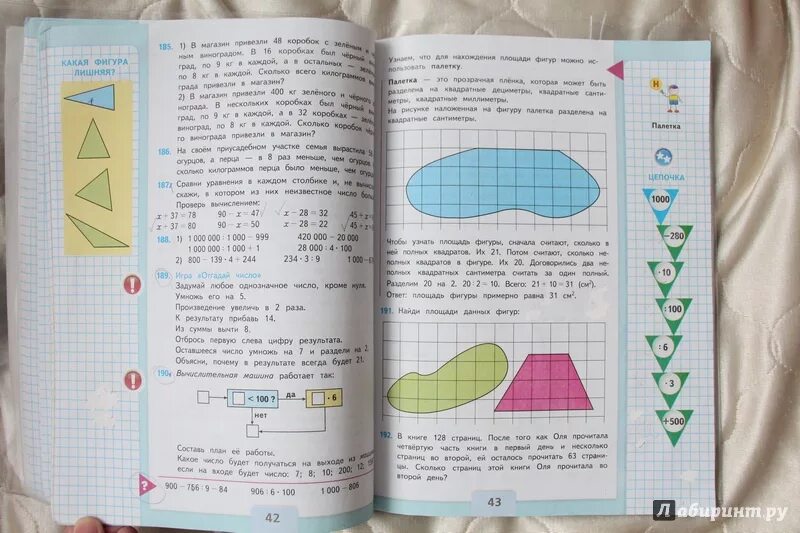 КАКАЯ ФИГУРА
ЛИШНЯЯ?
185. 1) В магазин привезли 48 коробок с зелёным и
ным виноградом. В 16 коробках был чёрный
по 9 кг в каждой, а в остальных —
по 8 кг в каждой. Сколько всего килограммов
града привезли в магазин?
2) В магазин привезли 400 кг зелёного и чёрного
нограда. В нескольких коробках был чёрный
град, по 9 кг в каждой, а в 32 коробках —
виноград, по 8 кг в каждой. Сколько коробок
го винограда привезли в магазин?
186. На своём приусадебном участке семья вырастила
огурцов, а перца — в 8 раз меньше, чем огурцов.
сколько килограммов перца было меньше, чем
187. Сравни уравнения в каждом столбике и, не
скажи, в котором из них неизвестное число
Проверь вычислением:
x + 37 = 78 90 − x = 47 x − 28 = 32 45 +
x + 37 = 80 90 − x = 50 x − 28 = 22 45 +
188. 1) 1 000 000 : 1000 − 999 420 000 − 20 000
1 000 000 : 1000 + 1 28 000 : 4 · 100
2) 800 − 139 · 4 + 244 234 · 3 : 9 1000
189. Игра «Отгадай число»
Задумай любое однозначное число, кроме нуля.
Умножь его на 5.
Произведение увеличь в 2 раза.
К результату прибавь 14.
Из суммы вычти 8.
Отбрось первую слева цифру результата.
Оставшееся число умножь на 7 и раздели на 2.
Объясни, почему в результате всегда будет 21.
190. Вычислительная машина работает так:
< 100 ? да · 6
нет
Составь план её работы.
Какое число будет получаться на выходе из
если на входе будет число: 7; 8; 10; 200; 12;
900 − 756 : 9 − 84 906 : 6 · 100 1 000 − 806
42
Узнаем, что для нахождения площади фигур можно ис-
пользовать палетку.
Палетка — это прозрачная плёнка, которая может быть
разделена на квадратные дециметры, квадратные санти-
метры, квадратные миллиметры.
На рисунке наложенная на фигуру палетка разделена на
квадратные сантиметры.
Чтобы узнать площадь фигуры, сначала считают, сколько в
ней полных квадратов. Их 21. Потом считают, сколько не-
полных квадратов в фигуре. Их 20. Договорились два не-
полных квадратных сантиметра считать за один полный.
Разделим 20 на 2. 20 : 2 = 10. Всего: 21 + 10 = 31 (см²).
Ответ: площадь фигуры примерно равна 31 см².
191. Найди площади данных фигур:
192. В книге 128 страниц. После того как Оля прочитала
четвёртую часть книги в первый день и несколько
страниц во второй, ей осталось прочитать 63 страни-
цы. Сколько страниц этой книги Оля прочитала во
второй день?
43
Н
Палетка
ЦЕПОЧКА
1000
−280
· 10
: 100
: 6
· 3
+500
Лабиринт.ру